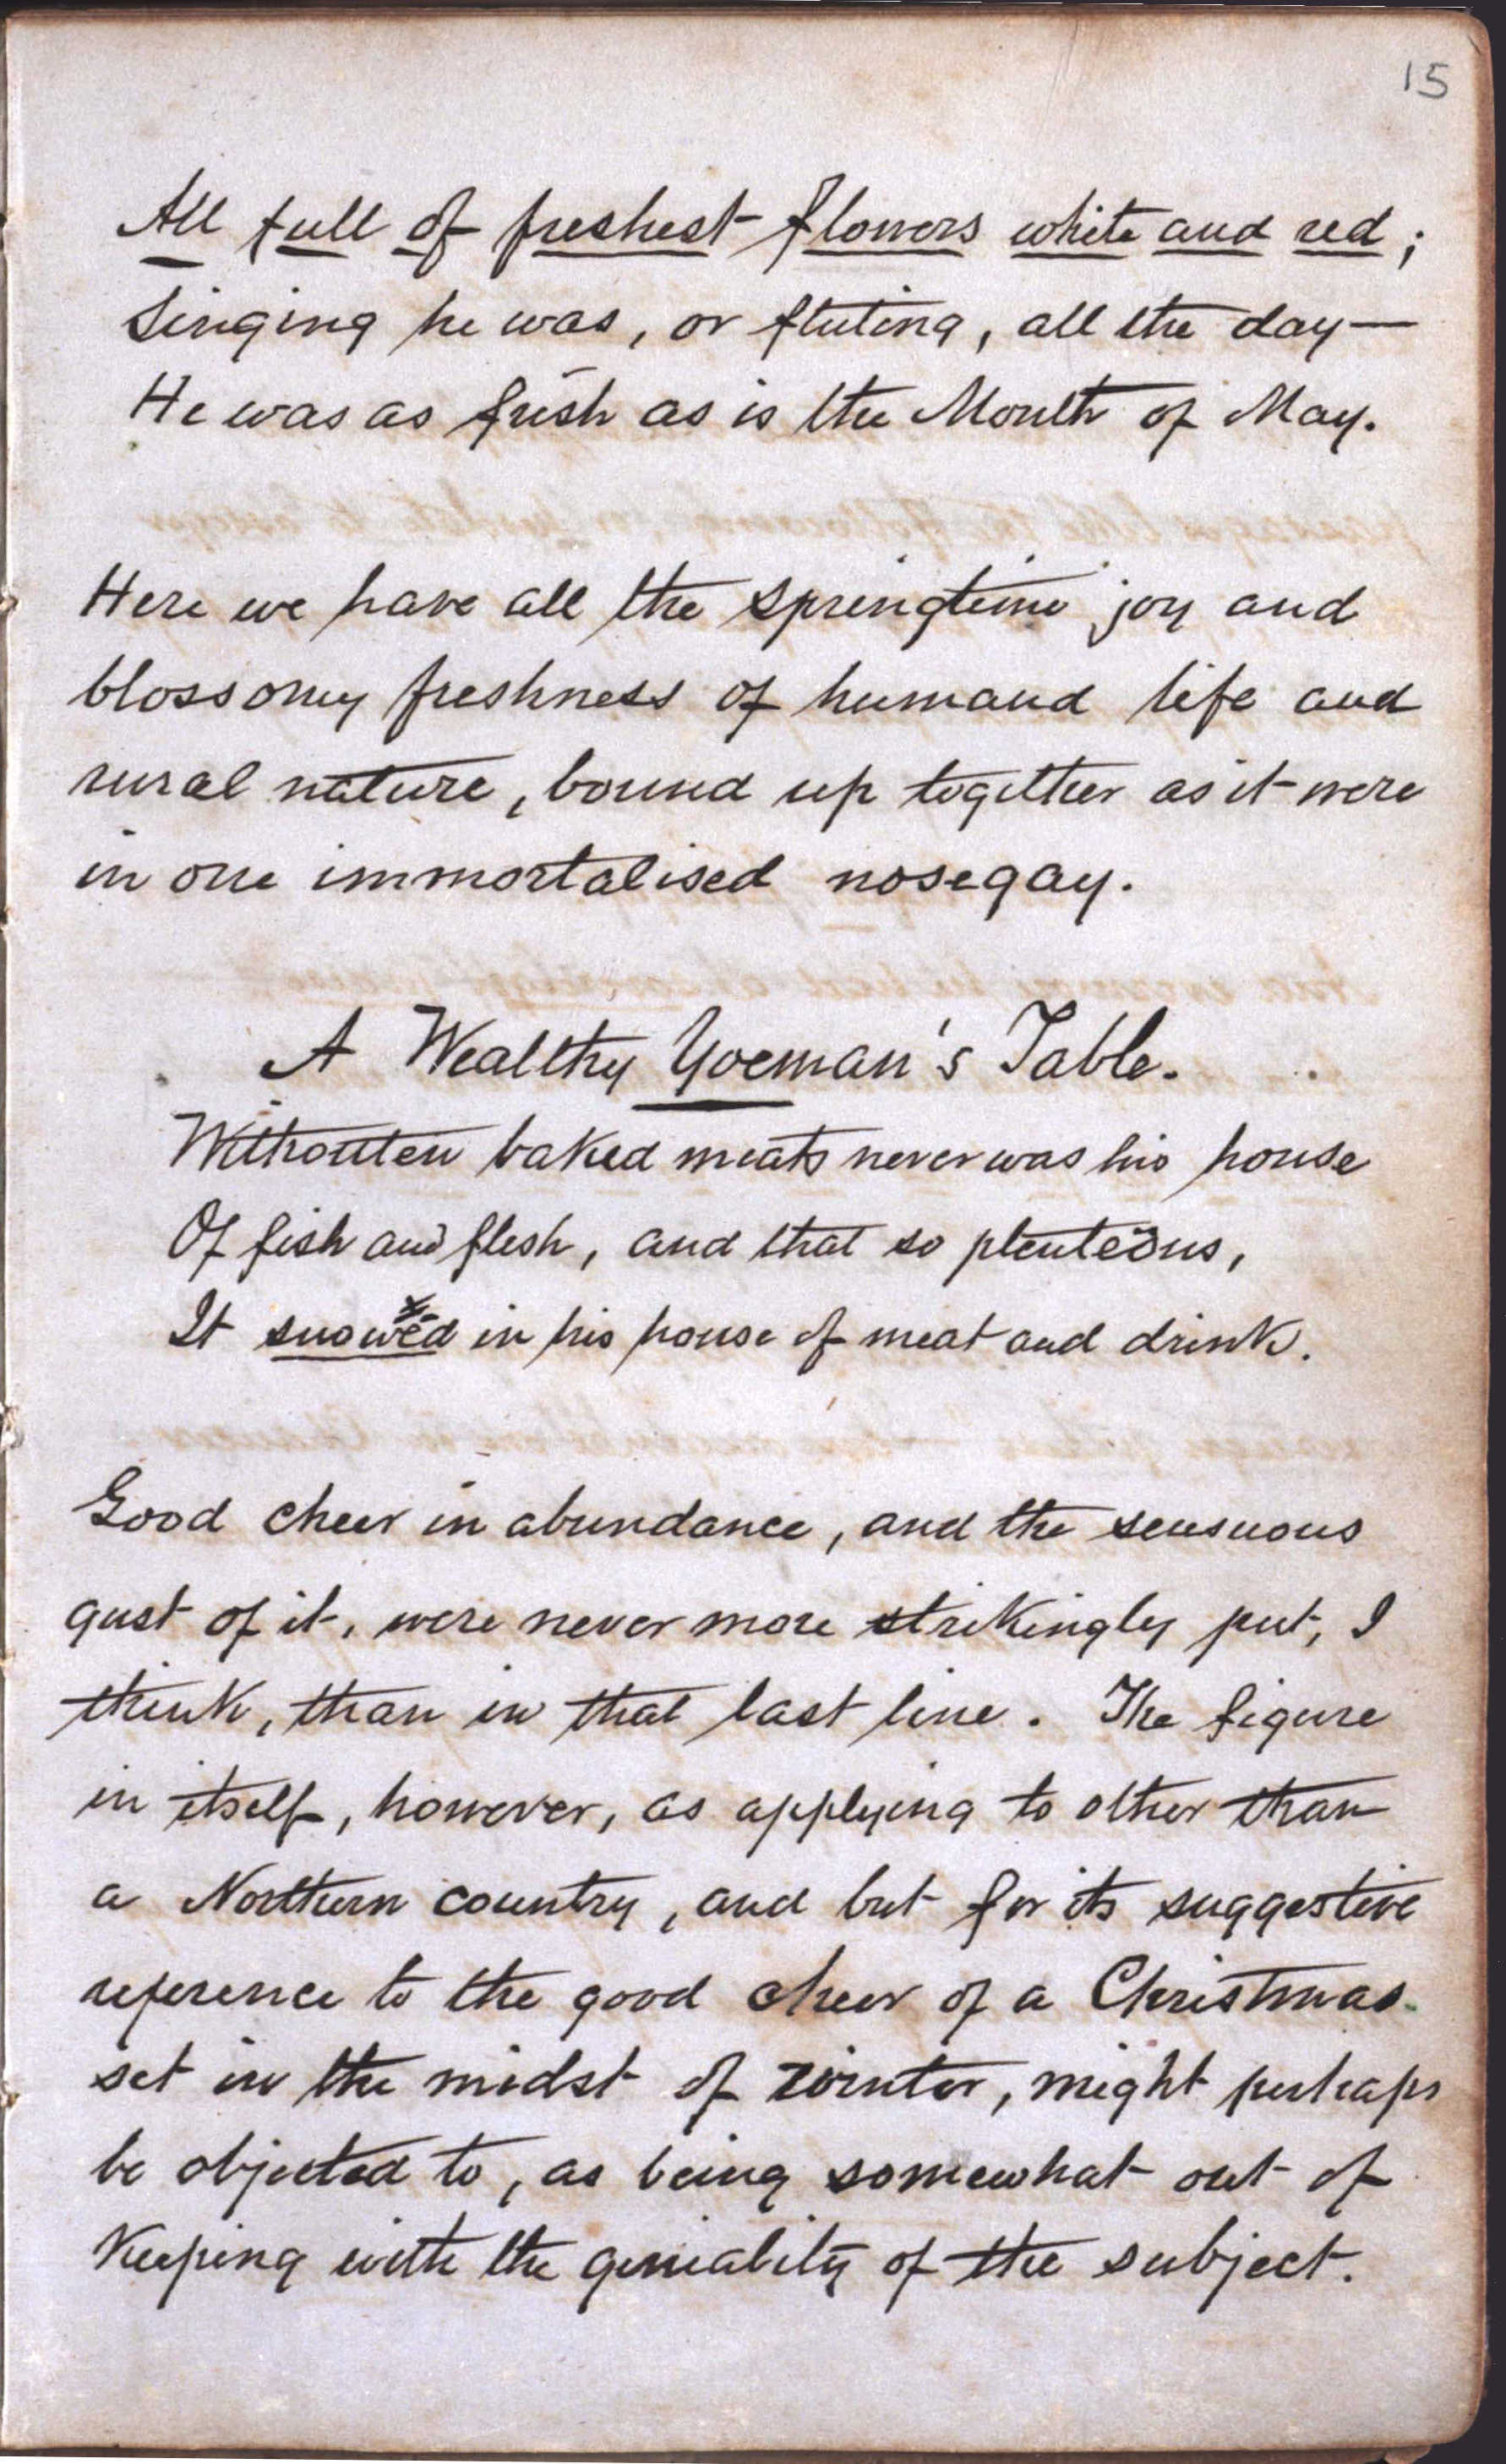 15
All full of freshest flowers white and red;
Singing he was, or fluting, all the day—
He was as fresh as is the Month of May.
Here we have all the springtime joy and
blossomy freshness of humand life and
rural nature, bound up together as it were
in one immortalised nosegay.
A Wealthy Yoeman's Table.
Withouten baked meats never was his house
Of fish and flesh, and that so plenteöus,
It snowëd in his house of meat and drink.
Good cheer in abundance, and the sensuous
gust of it, were never more strikingly put, I
think, than in that last line. The figure
in itself, however, as applying to other than
a Northern country, and but for its suggestive
reference to the good cheer of a Christmas
set in the midst of winter, might perhaps
be objected to, as being somewhat out of
keeping with the geniality of the subject.